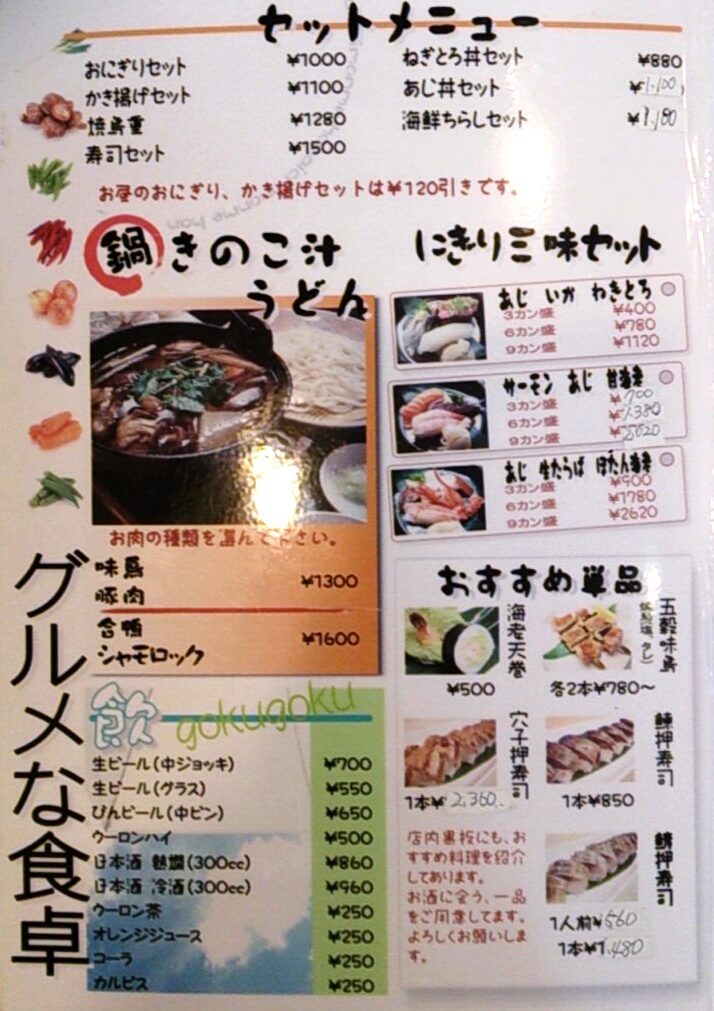 セットメニュー
おにぎりセット ¥1000
かき揚げセット ¥1100
焼鳥重 ¥1280
寿司セット ¥1500
ねぎとろ丼セット ¥880
あじ丼セット ¥1,100
海鮮ちらしセット ¥1,180
お昼のおにぎり、かき揚げセットは¥120引きです。
鍋きのこ汁
うどん
お肉の種類を選んで下さい。
味鳥
豚肉
¥1300
合鴨
シャモロック
¥1600
にぎり三昧セット
あじ いか ねぎとろ
3カン盛 ¥400
6カン盛 ¥780
9カン盛 ¥1120
サーモン あじ 甘海老
3カン盛 ¥700
6カン盛 ¥1,380
9カン盛 ¥2020
あじ 生たらば ぼたん海老
3カン盛 ¥900
6カン盛 ¥1780
9カン盛 ¥2620
グルメな食卓
飲 gokugoku
生ビール(中ジョッキ) ¥700
生ビール(グラス) ¥550
びんビール(中ビン) ¥650
ウーロンハイ ¥500
日本酒 熱燗(300cc) ¥860
日本酒 冷酒(300cc) ¥960
ウーロン茶 ¥250
オレンジジュース ¥250
コーラ ¥250
カルピス ¥250
おすすめ単品
海老天巻
¥500
五穀味鳥
各2本¥780～
穴子押寿司
1本¥2,360
鰊押寿司
1本¥850
鯖押寿司
1人前¥560
1本¥1,480
店内黒板にも、お
すすめ料理を紹介
してあります。
お酒に合う、一品
をご用意してます。
よろしくお願いしま
す。